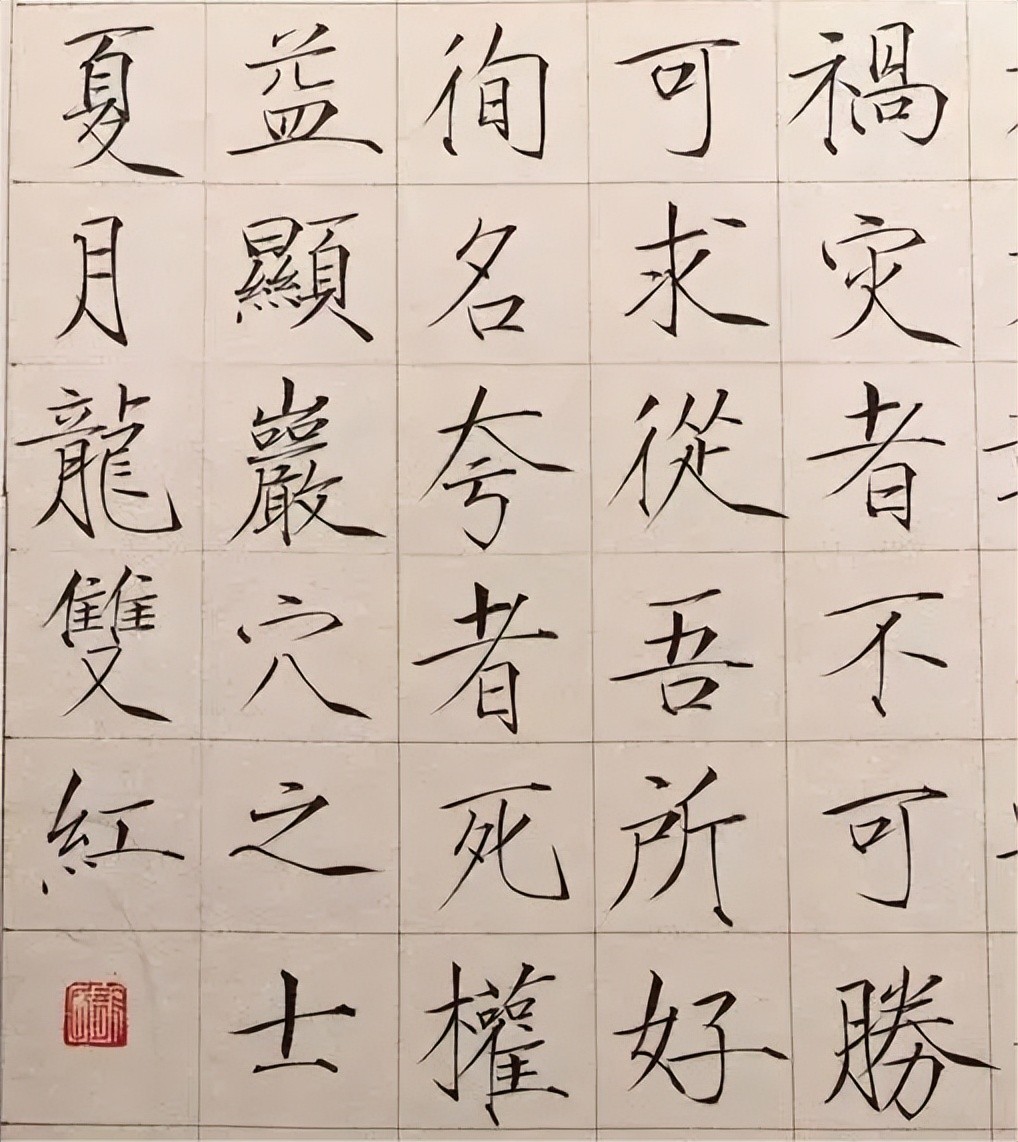 禍災者不可勝
可求從吾所好
徇名夸者死權
益顯巖穴之士
夏月龍雙紅